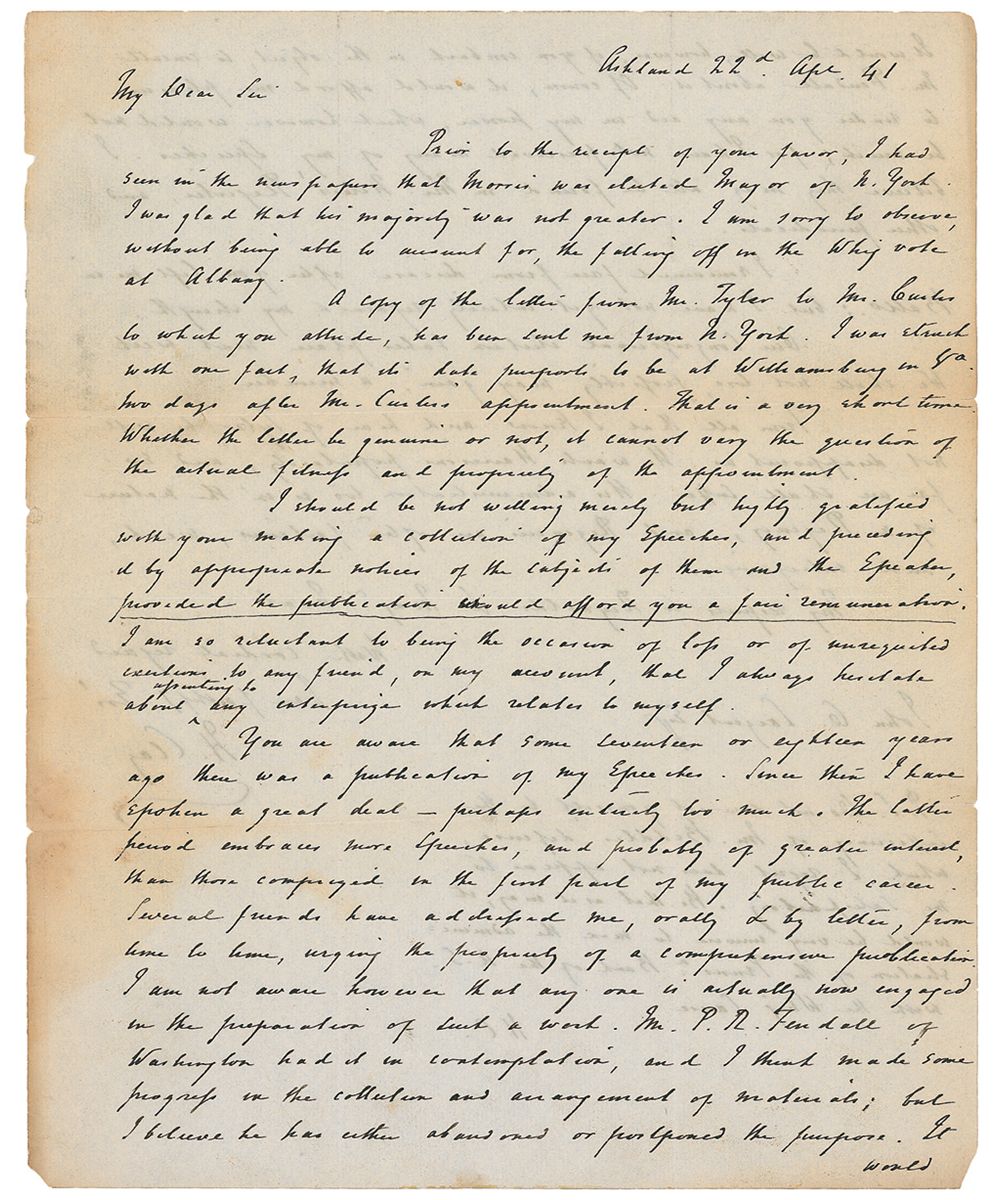 Ashland 22d. Apl. 41
My Dear Sir
Prior to the receipt of your favor, I had
seen in the newspapers that Morris was elected Mayor of N. York.
I was glad that his majority was not greater. I am sorry to observe,
without being able to account for, the falling off in the Whig vote
at Albany.
A copy of the letter from Mr. Tyler to Mr. Curtis
to which you allude, has been sent me from N. York. I was struck
with one fact, that its date purports to be at Williamsburg in Va.
two days after Mr. Curtis's appointment. That is a very short time.
Whether the letter be genuine or not, it cannot vary the question of
the actual fitness and propriety of the appointment.
I should be not willing merely but highly gratified
with your making a collection of my Speeches, and preceding
it by appropriate notices of the subjects of them and the Speaker,
provided the publication would afford you a fair remuneration.
I am so reluctant to being the occasion of loss or of unrequited
exertions to any friend, on my account, that I always hesitate
about assenting to any enterprize which relates to myself.
You are aware that some seventeen or eighteen years
ago there was a publication of my Speeches. Since then I have
spoken a great deal — perhaps entirely too much. The latter
period embraces more Speeches, and probably of greater interest,
than those comprized in the first part of my public career.
Several friends have addressed me, orally & by letter, from
time to time, urging the propriety of a comprehensive publication.
I am not aware however that any one is actually now engaged
in the preparation of such a work. Mr. P. R. Fendall of
Washington had it in contemplation, and I think made some
progress in the collection and arrangement of materials; but
I believe he has either abandoned or postponed the purpose. It
would